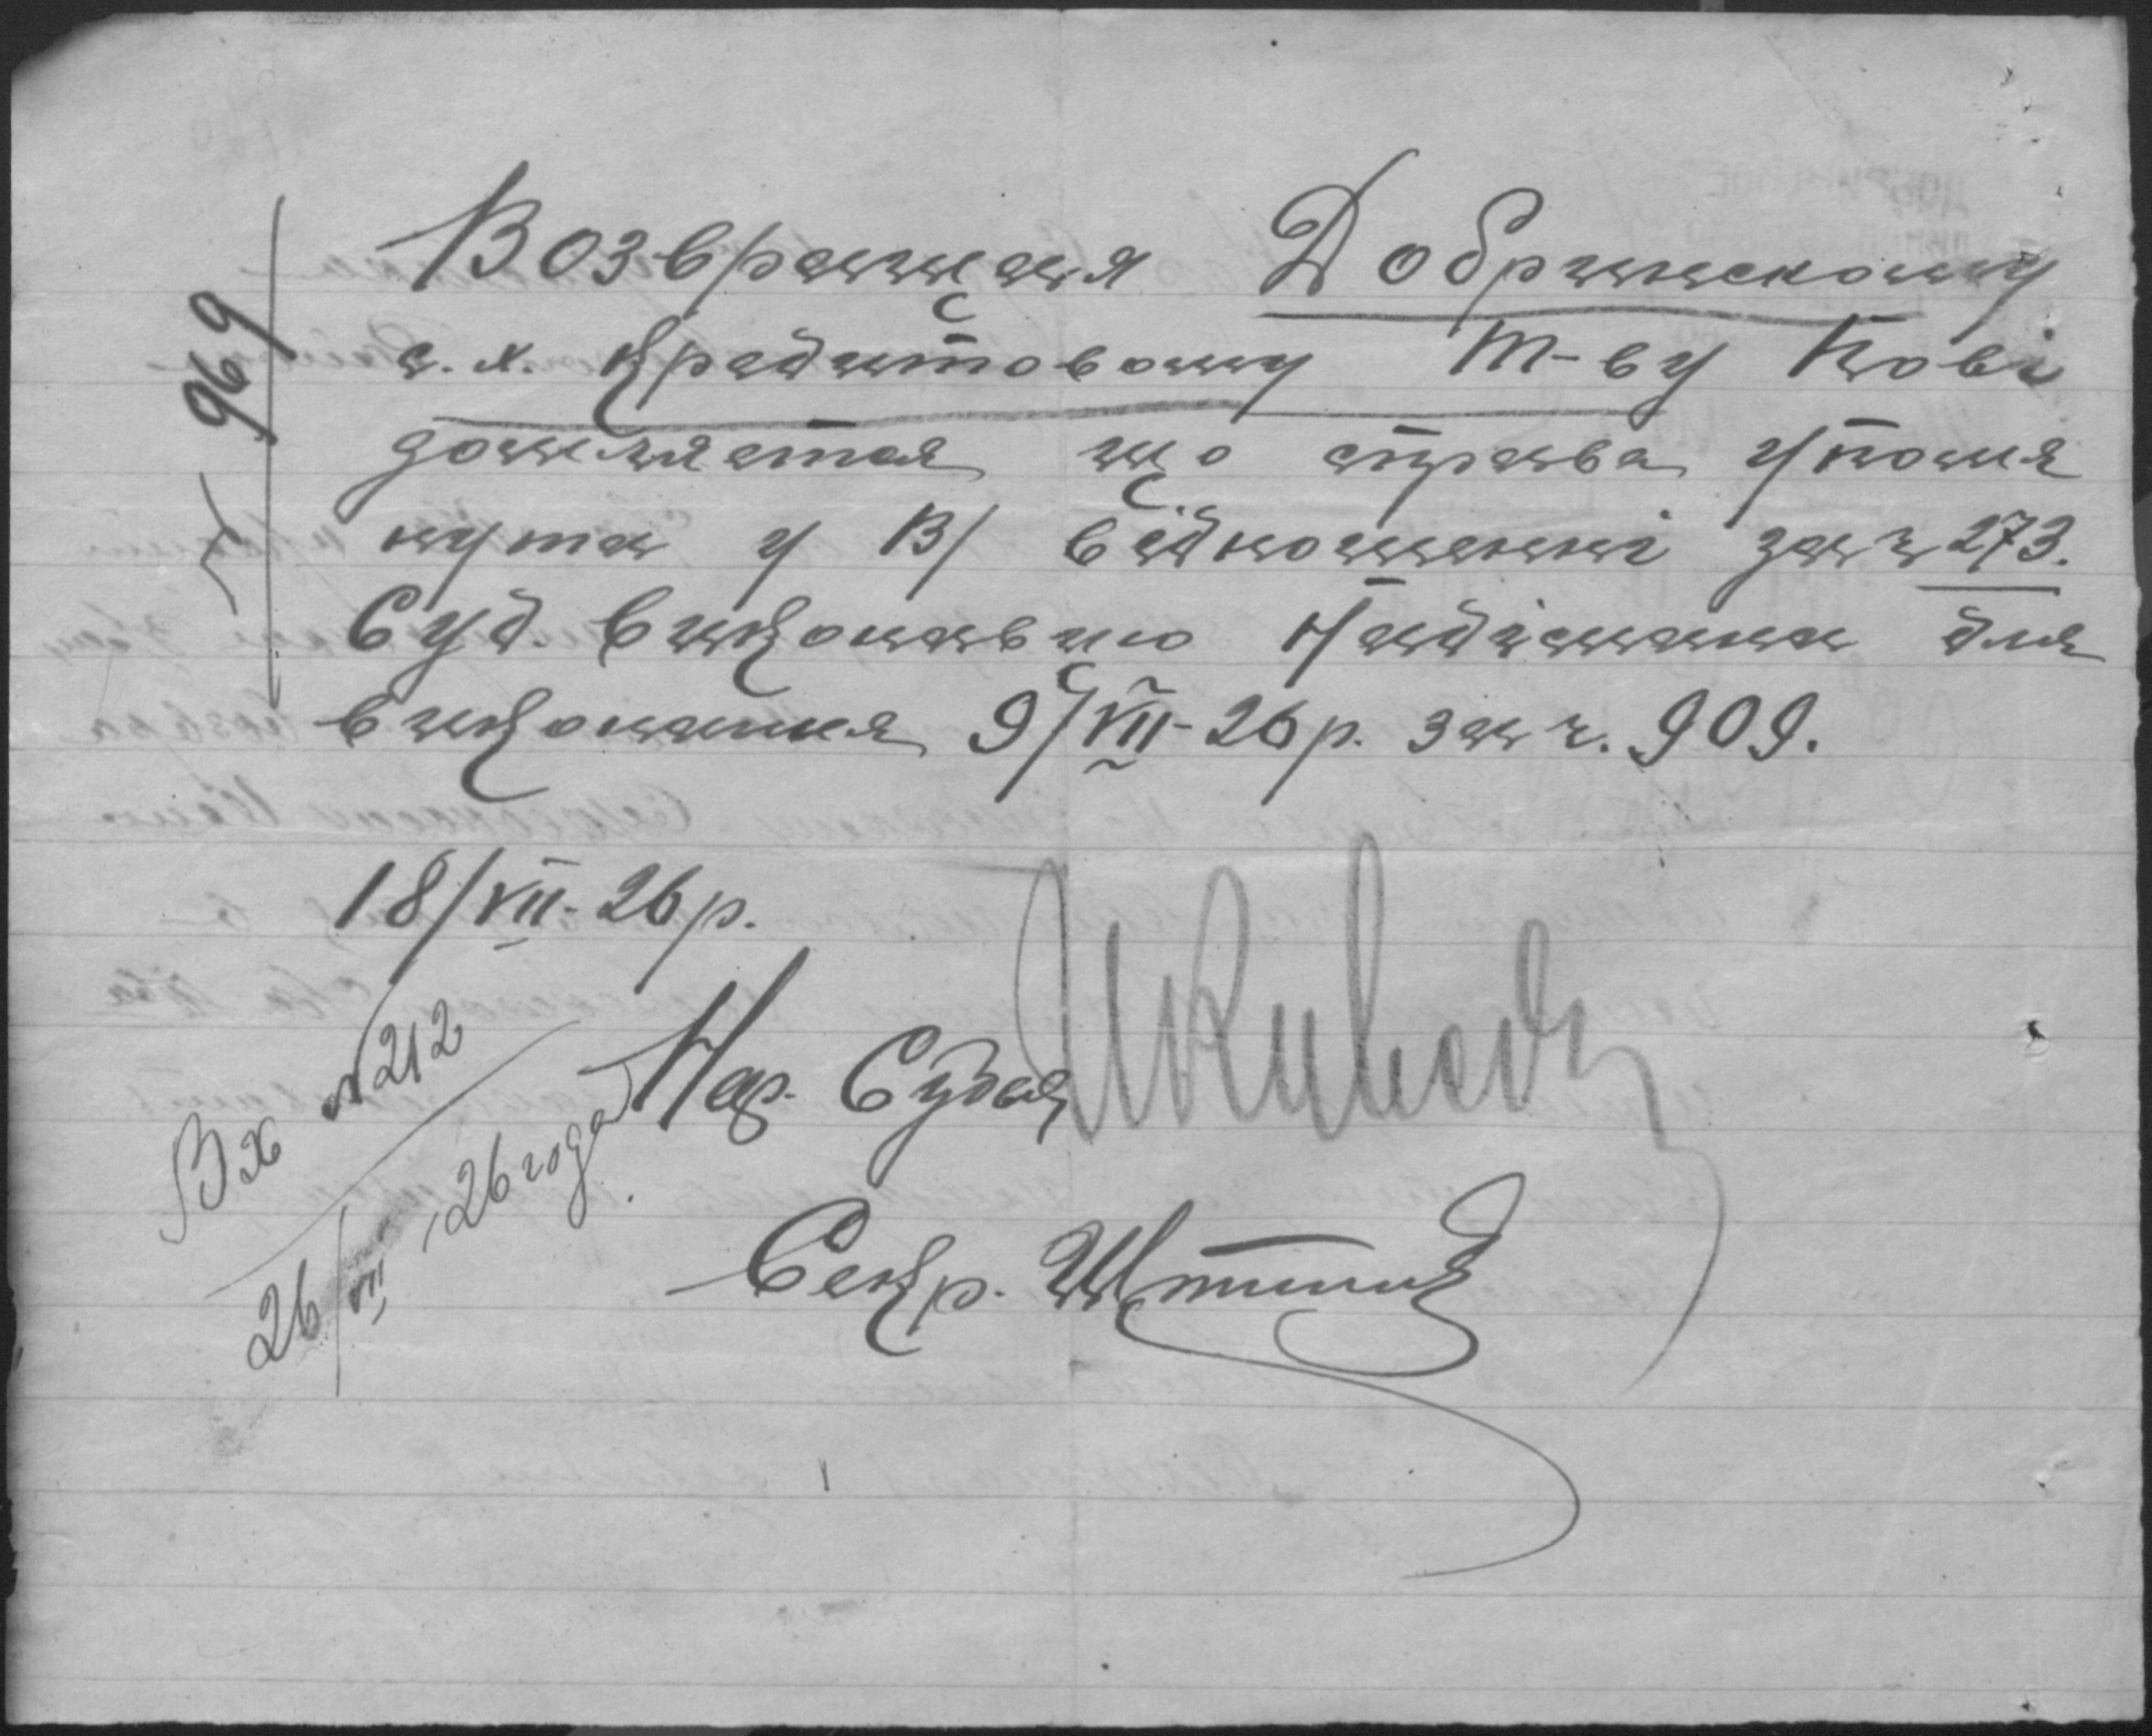 Возвращая Добринскому
с. х. кредитовому т-ву Пові
домляется що справа упомя
нута у В/ відношенні за ч 273.
Суд. виконавцю надіслана для
виконання 9/VII-26 р. за ч. 909.
969
18/VII-26 р.
Нар. Судья
Вх № 212
26/VII 26 года
Секр.